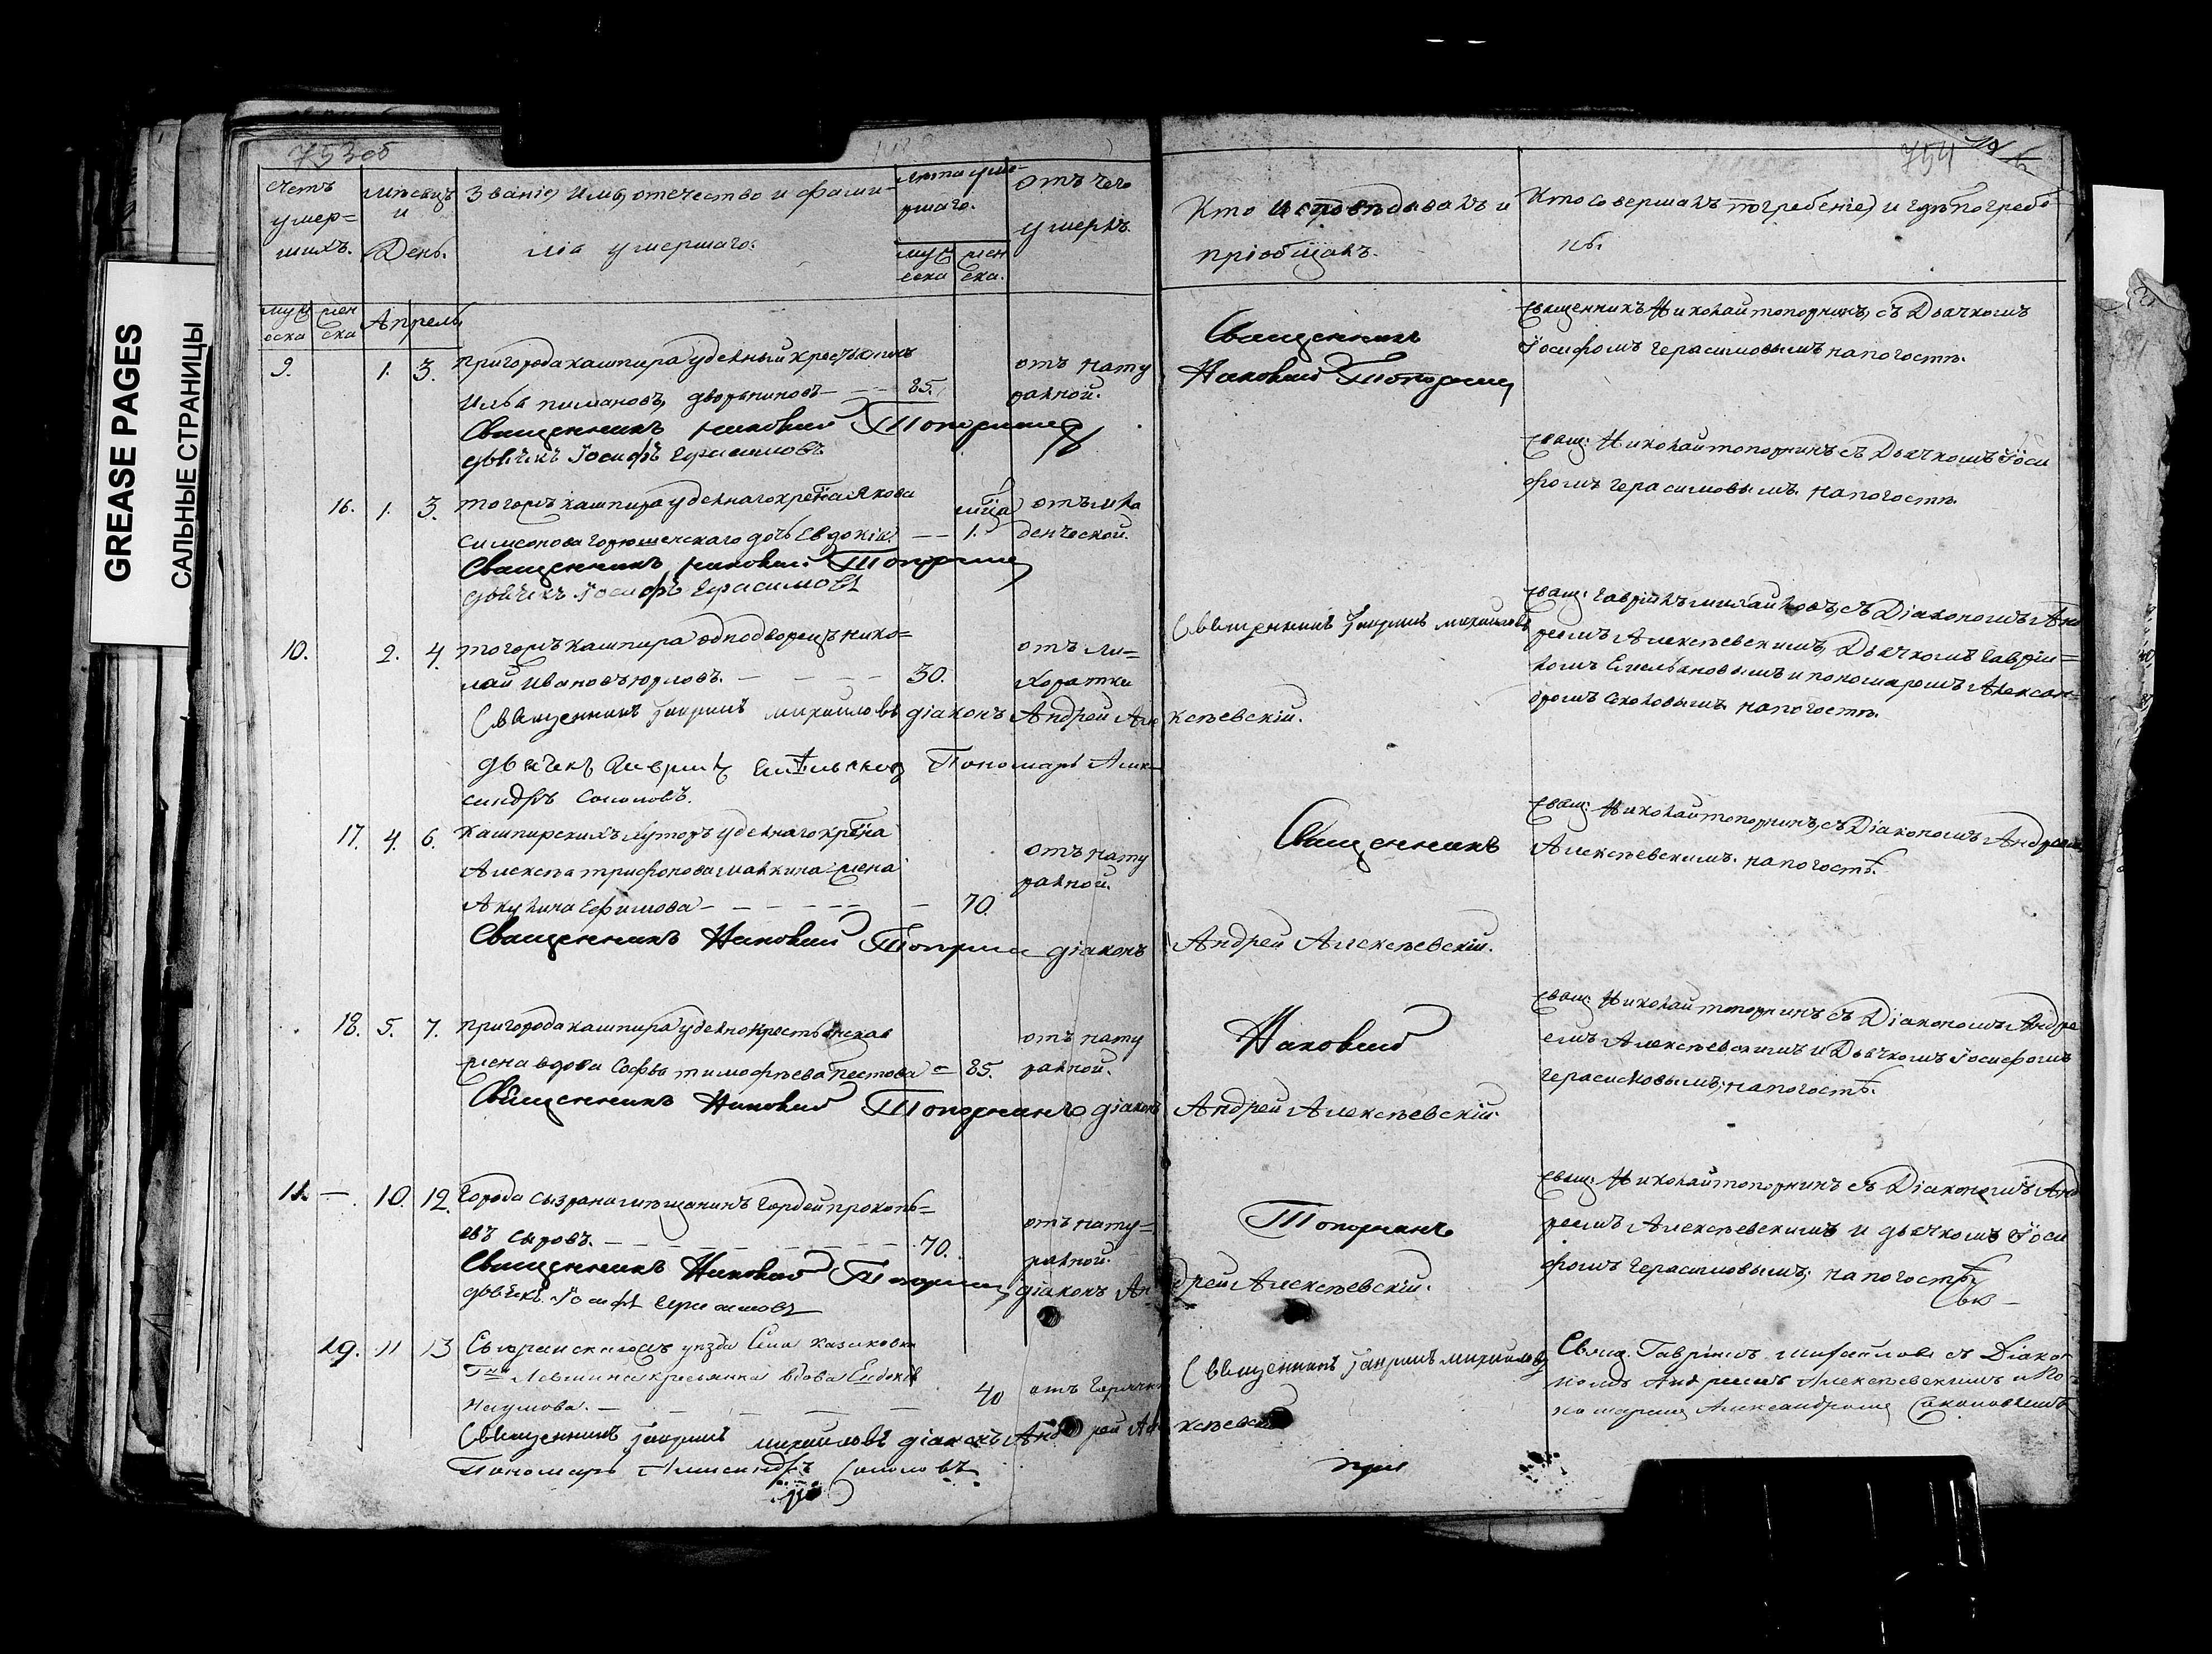 GREASE PAGES
САЛЬНЫЕ СТРАНИЦЫ
753об
754
Счетъ умер=шихъ.
Мѣсяцъ и День.
Званіе, Имя, отечество и фами-
лія умершаго.
Лѣта уме-
ршаго.
муж
еска
жен
ска.
отъ чего
умеръ.
Кто исповѣдывалъ и
пріобщалъ.
Кто совершалъ погребеніе, и гдѣ погребе
нъ.
муж
еска
жен
ска
Апрель
9. 1. 3. Пригорода кашпира удельный крестьянинъ
Илья пимановъ, дворениновъ — — 85. отъ нату
ральной.
Священникъ Николай Топорнинъ
дьячекъ Іосифъ Герасимовъ
Священникъ
Николай Топорнинъ
Священникъ Николай топорнинъ, съ Дьячкомъ
Іосифомъ герасимовымъ на погостѣ.
16. 1. 3. тогожъ кашпира удельнаго крестьянина Якова
Симеонова дочь Евдокія. — — 1. отъ мла
денческой.
Священникъ Николай Топорнинъ
дьячекъ Іосифъ Герасимовъ
свящ: Николай топорнинъ съ Дьячкомъ Іоси
фомъ герасимовымъ. на погостѣ.
10. 2. 4. тогожъ кашпира однодворецъ нико=
лай Ивановъ юрловъ. — — — — 30. отъ ли=
хоратки
Священникъ Гавриилъ михайловъ діаконъ Андрей Алексѣевскій.
дьячекъ Гавриилъ Емельяновъ Пономарь Алек-
сандръ Соколовъ.
Священникъ Гавриилъ михайловъ
свящ: Гавріилъ михайловъ, съ Діакономъ Анд
реемъ Алексѣевскимъ, Дьячкомъ Гавріи=
ломъ Емельяновымъ и пономаремъ Алексан=
дромъ Соколовымъ. на погостѣ.
17. 4. 6. Кашпирскихъ хуторъ удельнаго крестьянина
Алексѣа трифонова малкина жена
Акулина Ефимова — — — — — 70. отъ нату
ральной.
Священникъ Николай Топорнинъ діаконъ Андрей Алексѣевскій.
Священникъ
свящ: Николай топорнинъ, съ Діакономъ Андреемъ
Алексѣевскимъ. на погостѣ.
18. 5. 7. Пригорода кашпира удельнокрестьянская
жена вдова Софья тимофѣева Пестова = 85. отъ нату
ральной.
Священникъ Николай Топорнинъ діаконъ Андрей Алексѣевскій.
Николай
свящ: Николай топорнинъ съ Діакономъ Андре
емъ Алексѣевскимъ и Дьячкомъ Іосифомъ
герасимовымъ, на погостѣ.
11. — 10. 12. Города сызрана мѣщанинъ Гордей прокопь=
евъ сыровъ. — — — — — 70. отъ нату=
ральной.
Священникъ Николай Топорнинъ діаконъ Андрей Алексѣевскій.
дьячекъ Іосифъ Герасимовъ
Топорнинъ
свящ: Николай топорнинъ съ Діакономъ Анд
реемъ Алексѣевскимъ и дьячкомъ Іоси
фомъ герасимовымъ, на погостѣ.
19. 11 13 Сызранскагожъ уезда Села
Г-на Левшина крестьянка вдова Евдокія
Наумова. — — — — 40 отъ Горячки
Священникъ Гавриилъ михайловъ діаконъ Андрей Алексѣевскій
Пономарь Александръ Соколовъ
Священникъ Гавриилъ михайловъ
Свящ. Гавріилъ михайловъ съ Діако-
номъ Андреемъ Алексѣевскимъ и По-
номаремъ Александромъ Соколовымъ
при